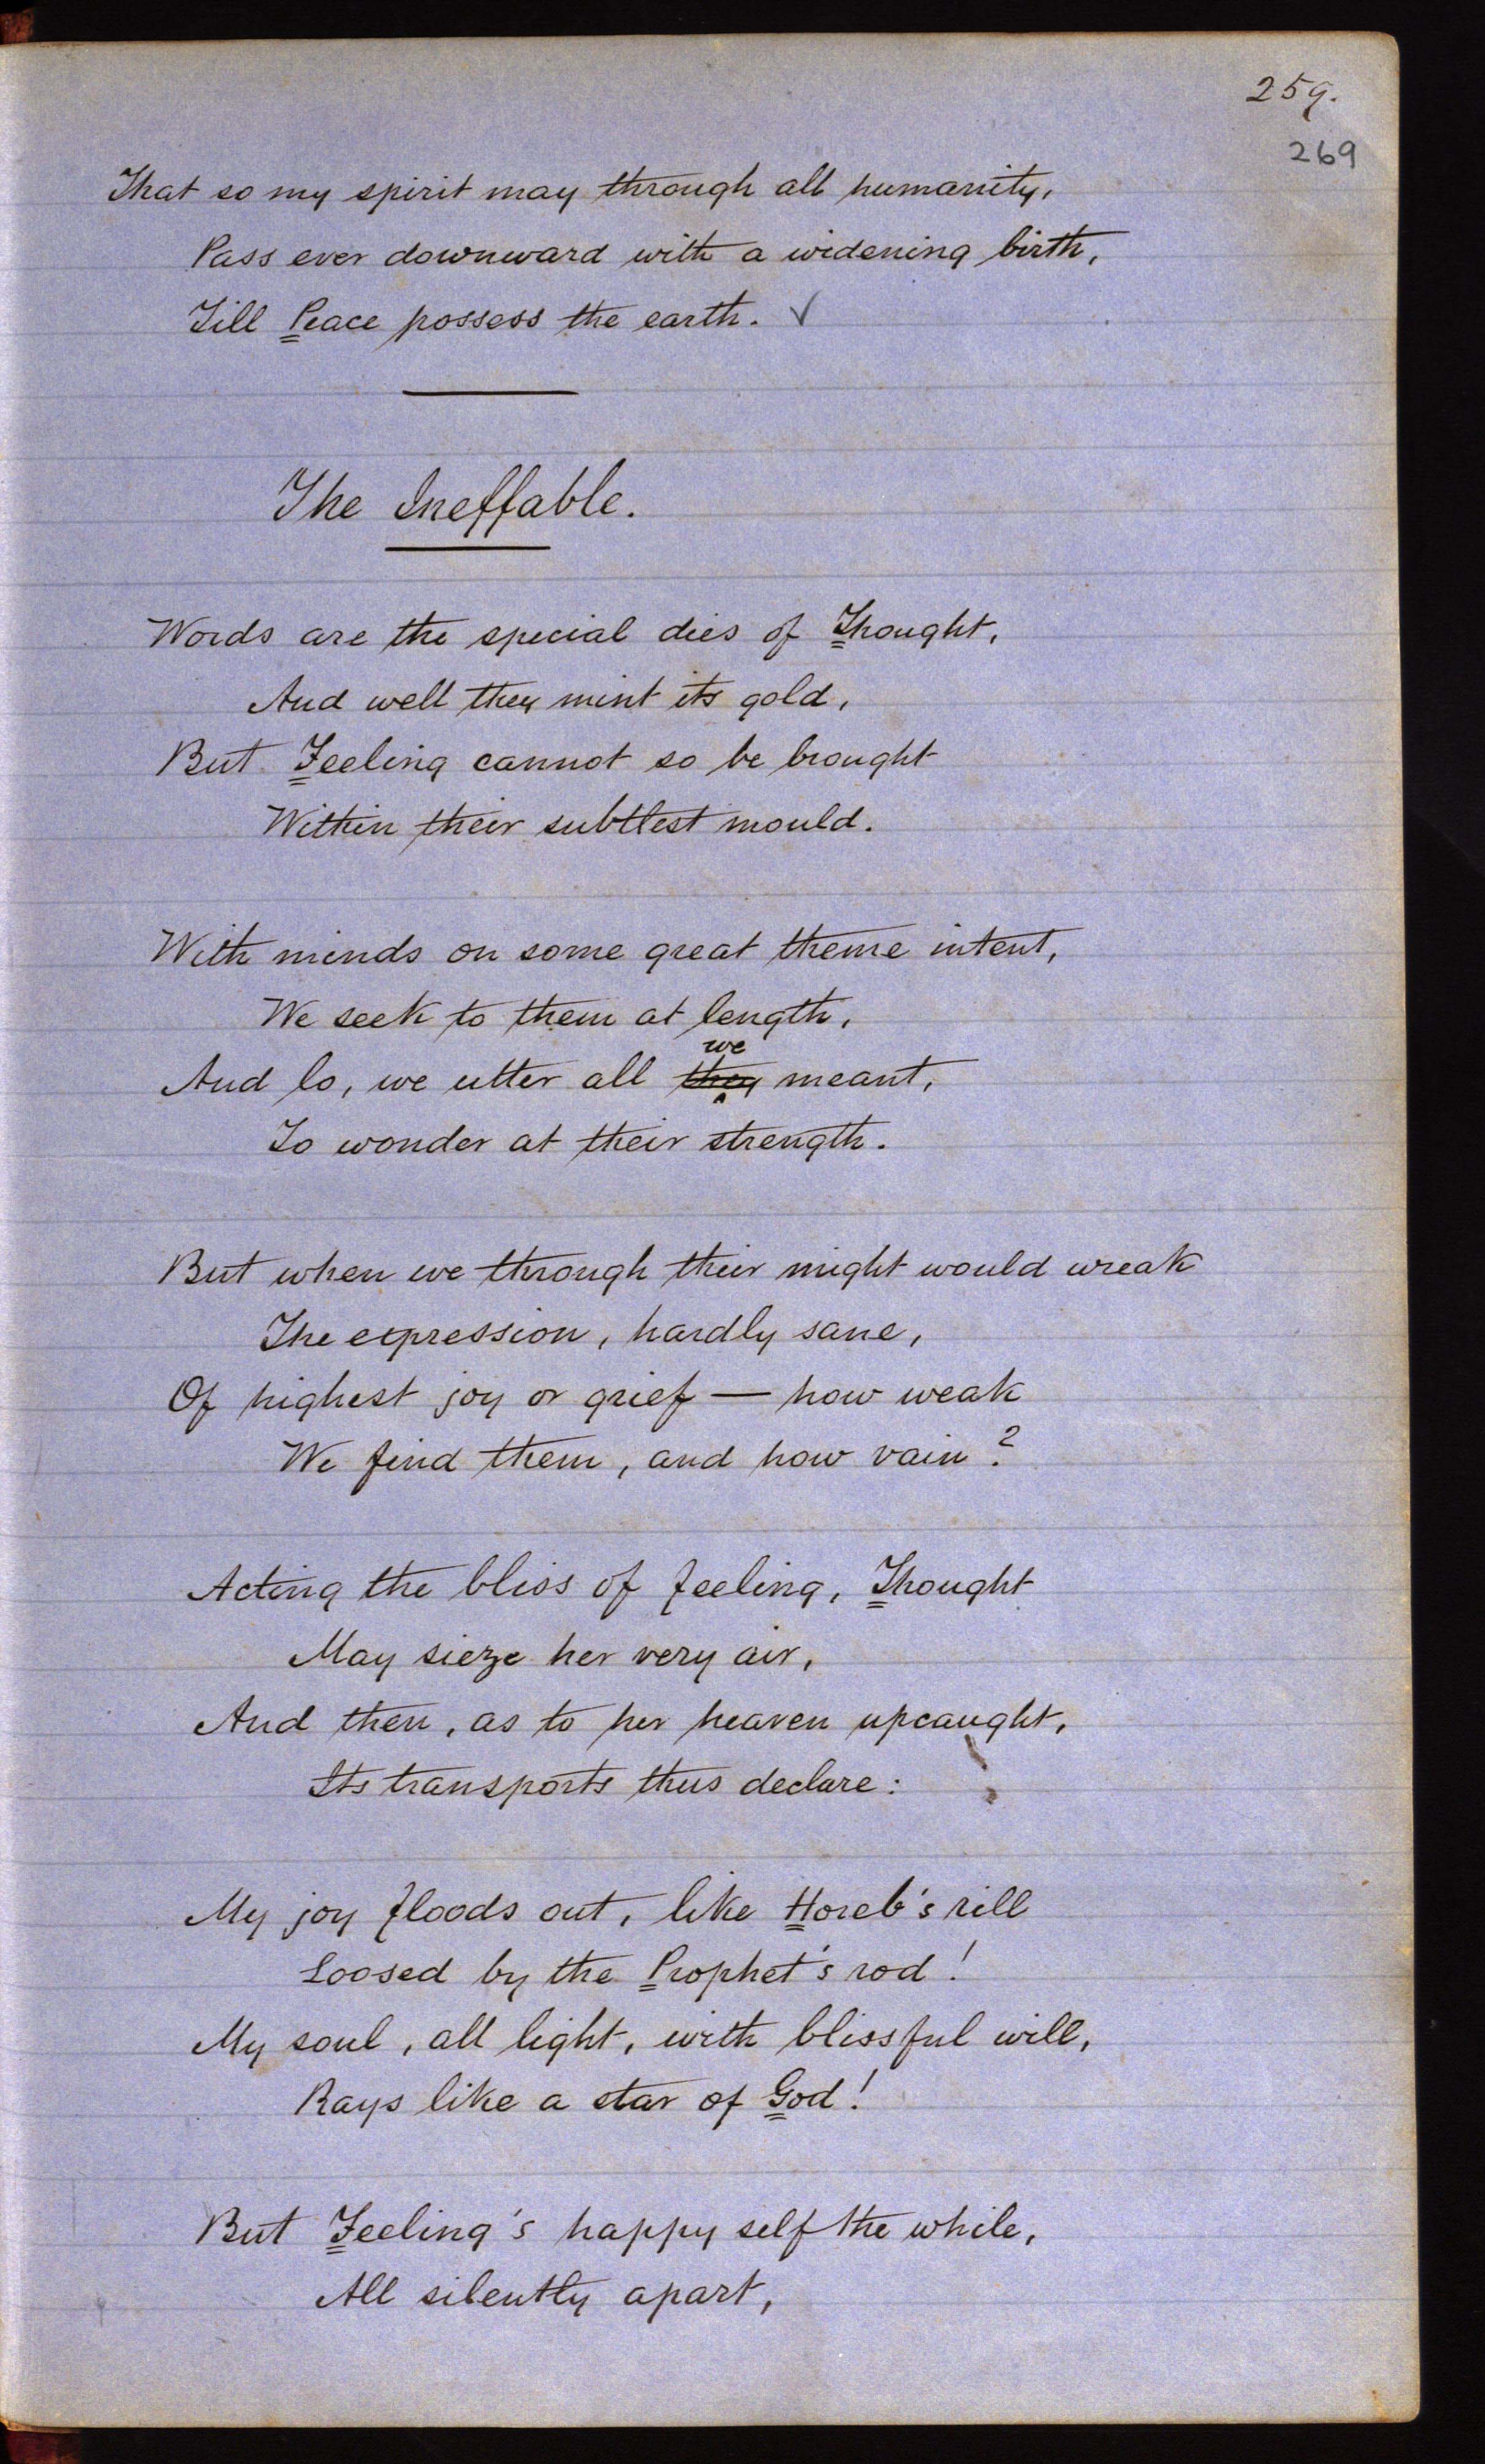 259.
269
That so my spirit may through all humanity,
Pass ever downward with a widening birth,
Till Peace possess the earth. ✓
The Ineffable.
Words are the special dies of Thought,
And well they mint its gold,
But Feeling cannot so be brought
Within their subtlest mould.
With minds on some great theme intent,
We seek to them at length,
we
And lo, we utter all they meant,
To wonder at their strength.
But when we through their might would wreak
The expression, hardly sane,
Of highest joy or grief — how weak
We find them, and how vain?
Acting the bliss of feeling, Thought
May sieze her very air,
And then, as to her heaven upcaught,
Its transports thus declare:
My joy floods out, like Horeb's rill
Loosed by the Prophet's rod!
My soul, all light, with blissful will,
Rays like a star of God!
But Feeling's happy self the while,
All silently apart,